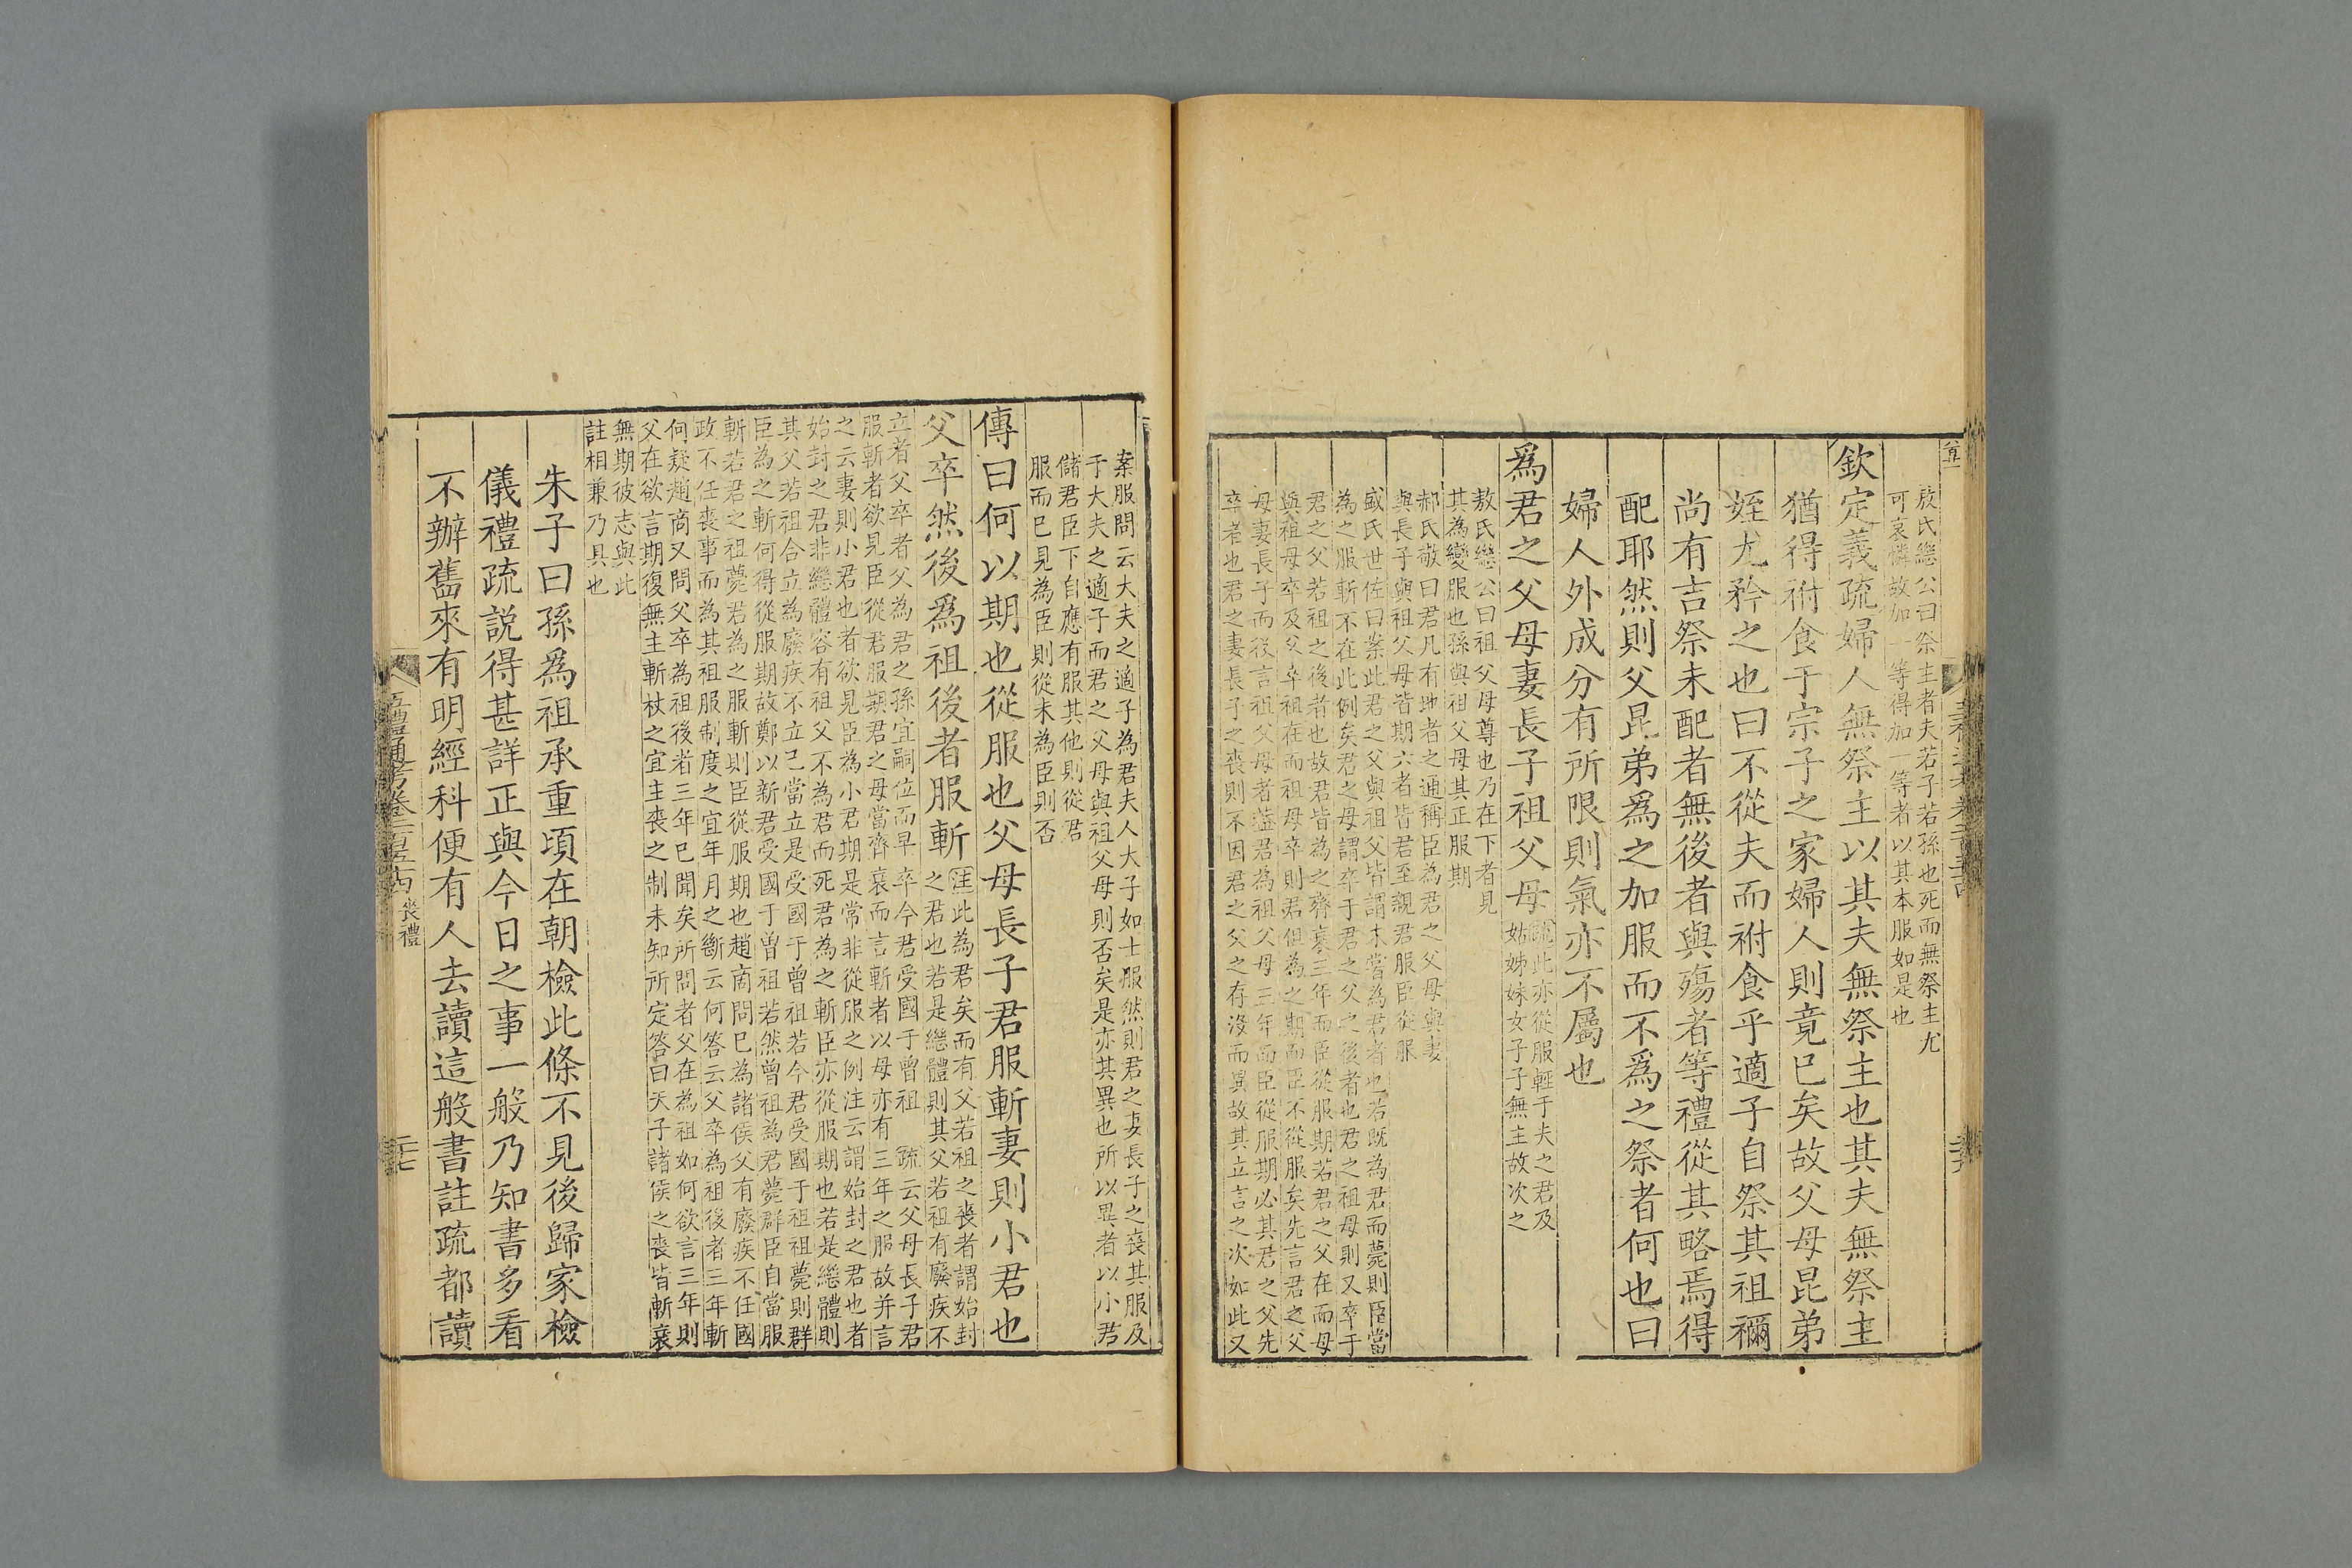 敖氏繼公曰祭主者夫若子若孫也死而無祭主尤
可哀憐故加一等得加一等者以其本服如是也
欽定義疏婦人無祭主以其夫無祭主也其夫無祭主
猶得祔食于宗子之家婦人則竟已矣故父母昆弟
姪尤矜之也曰不從夫而祔食乎適子自祭其祖禰
尚有吉祭未配者無後者與殤者等禮從其略焉得
配耶然則父昆弟爲之加服而不爲之祭者何也曰
婦人外成分有所限則氣亦不屬也
爲君之父母妻長子祖父母
疏此亦從服輕于夫之君及
姑姊妹女子子無主故次之
敖氏繼公曰祖父母尊也乃在下者見
其為變服也孫與祖父母其正服期
郝氏敬曰君凡有地者之通稱臣為君之父母與妻
與長子與祖父母皆期六者皆君至親君服臣從服
盛氏世佐曰案此君之父與祖父皆謂未嘗為君者也若既為君而薨則臣當
為之服斬不在此例矣君之母謂卒于君之父之後者也君之祖母則又卒于
君之父若祖之後者也故君皆為之齊衰三年而臣從服期若君之父在而母
與祖母卒及父卒祖在而祖母卒則君但為之期而臣不從服矣先言君之父
母妻長子而後言祖父母者蓋君為祖父母三年而臣從服期必其君之父先
卒者也君之妻長子之喪則不因君之父之存沒而異故其立言之次如此又
案服問云大夫之適子為君夫人大子如士服然則君之妻長子之喪其服及
于大夫之適子而君之父母與祖父母則否矣是亦其異也所以異者以小君
儲君臣下自應有服其他則從君
服而已見為臣則從未為臣則否
傳曰何以期也從服也父母長子君服斬妻則小君也
父卒然後爲祖後者服斬
注此為君矣而有父若祖之喪者謂始封
之君也若是繼體則其父若祖有廢疾不
立者父卒者父為君之孫宜嗣位而早卒今君受國于曾祖 疏云父母長子君
服斬者欲見臣從君服期君之母當齊衰而言斬者以母亦有三年之服故并言
之云妻則小君也者欲見臣為小君期是常非從服之例注云謂始封之君也者
始封之君非繼體容有祖父不為君而死君為之斬臣亦從服期也若是繼體則
其父若祖合立為廢疾不立己當立是受國于曾祖若今君受國于祖祖薨則群
臣為之斬何得從服期故鄭以新君受國于曾祖若然曾祖為君薨群臣自當服
斬若君之祖薨君為之服斬則臣從服期也趙商問已為諸侯父有廢疾不任國
政不任喪事而為其祖服制度之宜年月之斷云何答云父卒為祖後者三年斬
何疑趙商又問父卒為祖後者三年已聞矣所問者父在為祖如何欲言三年則
父在欲言期復無主斬杖之宜主喪之制未知所定答曰天子諸侯之喪皆斬衰
無期彼志與此
註相兼乃具也
朱子曰孫爲祖承重頃在朝檢此條不見後歸家檢
儀禮疏說得甚詳正與今日之事一般乃知書多看
不辦舊來有明經科便有人去讀這般書註疏都讀
五禮通考卷二百五十四 喪禮
二十七